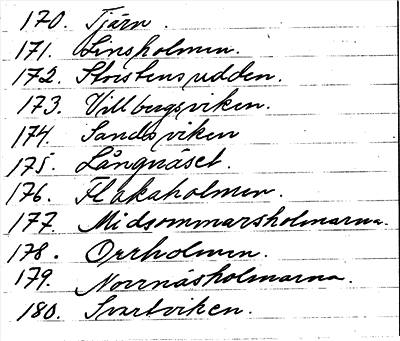 170. Tjärn.
171. Linsholmen.
172. Storstensudden.
173. Villbergsviken.
174. Sandsviken
175. Långnäset.
176. Flakaholmen.
177. Midsommarsholmarna.
178. Orrholmen.
179. Norrnäsholmarna.
180. Svartviken.